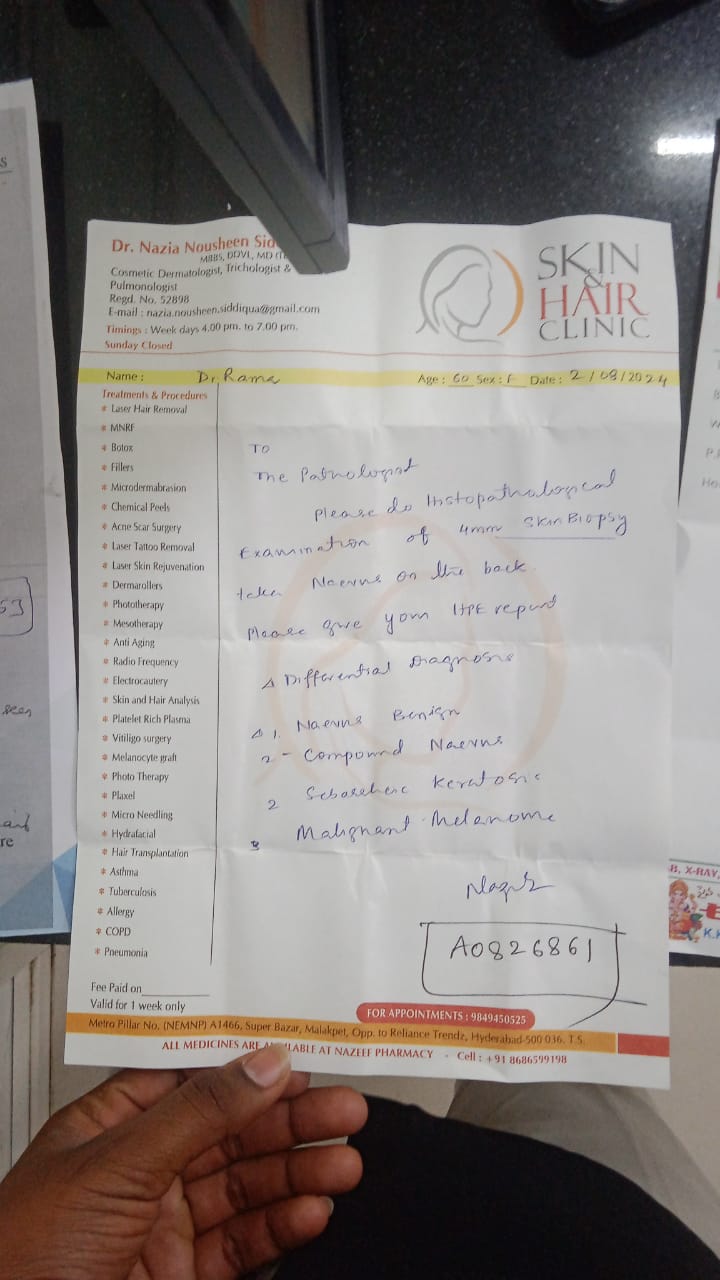 Dr. Nazia Nousheen
MBBS, DDVL, MD
Cosmetic Dermatologist, Trichologist &
Pulmonologist
Regd. No. 52898
E-mail : nazia.nousheen.siddiqua@gmail.com
Timings : Week days 4.00 pm. to 7.00 pm.
Sunday Closed
SKIN
&
HAIR
CLINIC
Name : Dr. Rama Age : 60 Sex : F Date : 2/08/2024
Treatments & Procedures
* Laser Hair Removal
* MNRF
* Botox
* Fillers
* Microdermabrasion
* Chemical Peels
* Acne Scar Surgery
* Laser Tattoo Removal
* Laser Skin Rejuvenation
* Dermarollers
* Phototherapy
* Mesotherapy
* Anti Aging
* Radio Frequency
* Electrocautery
* Skin and Hair Analysis
* Platelet Rich Plasma
* Vitiligo surgery
* Melanocyte graft
* Photo Therapy
* Plaxel
* Micro Needling
* Hydrafacial
* Hair Transplantation
* Asthma
* Tuberculosis
* Allergy
* COPD
* Pneumonia
To
The Pathologist
Please do Histopathological
Examination of 4mm Skin Biopsy
taken Naevus on the back.
Please give your HPE report
Δ Differential Diagnosis
Δ 1. Naevus Benign
2 - Compound Naevus
2 Keratosis
3 Malignant Melanoma
A0826861
Fee Paid on
Valid for 1 week only
FOR APPOINTMENTS : 9849450525
Metro Pillar No. (NEMNP) A1466, Super Bazar, Malakpet, Opp. to Reliance Trendz, Hyderabad-500 036. T.S.
ALL MEDICINES ARE AVAILABLE AT NAZEEF PHARMACY - Cell : +91 8686599198
53
seen
re
B, X-RAY,